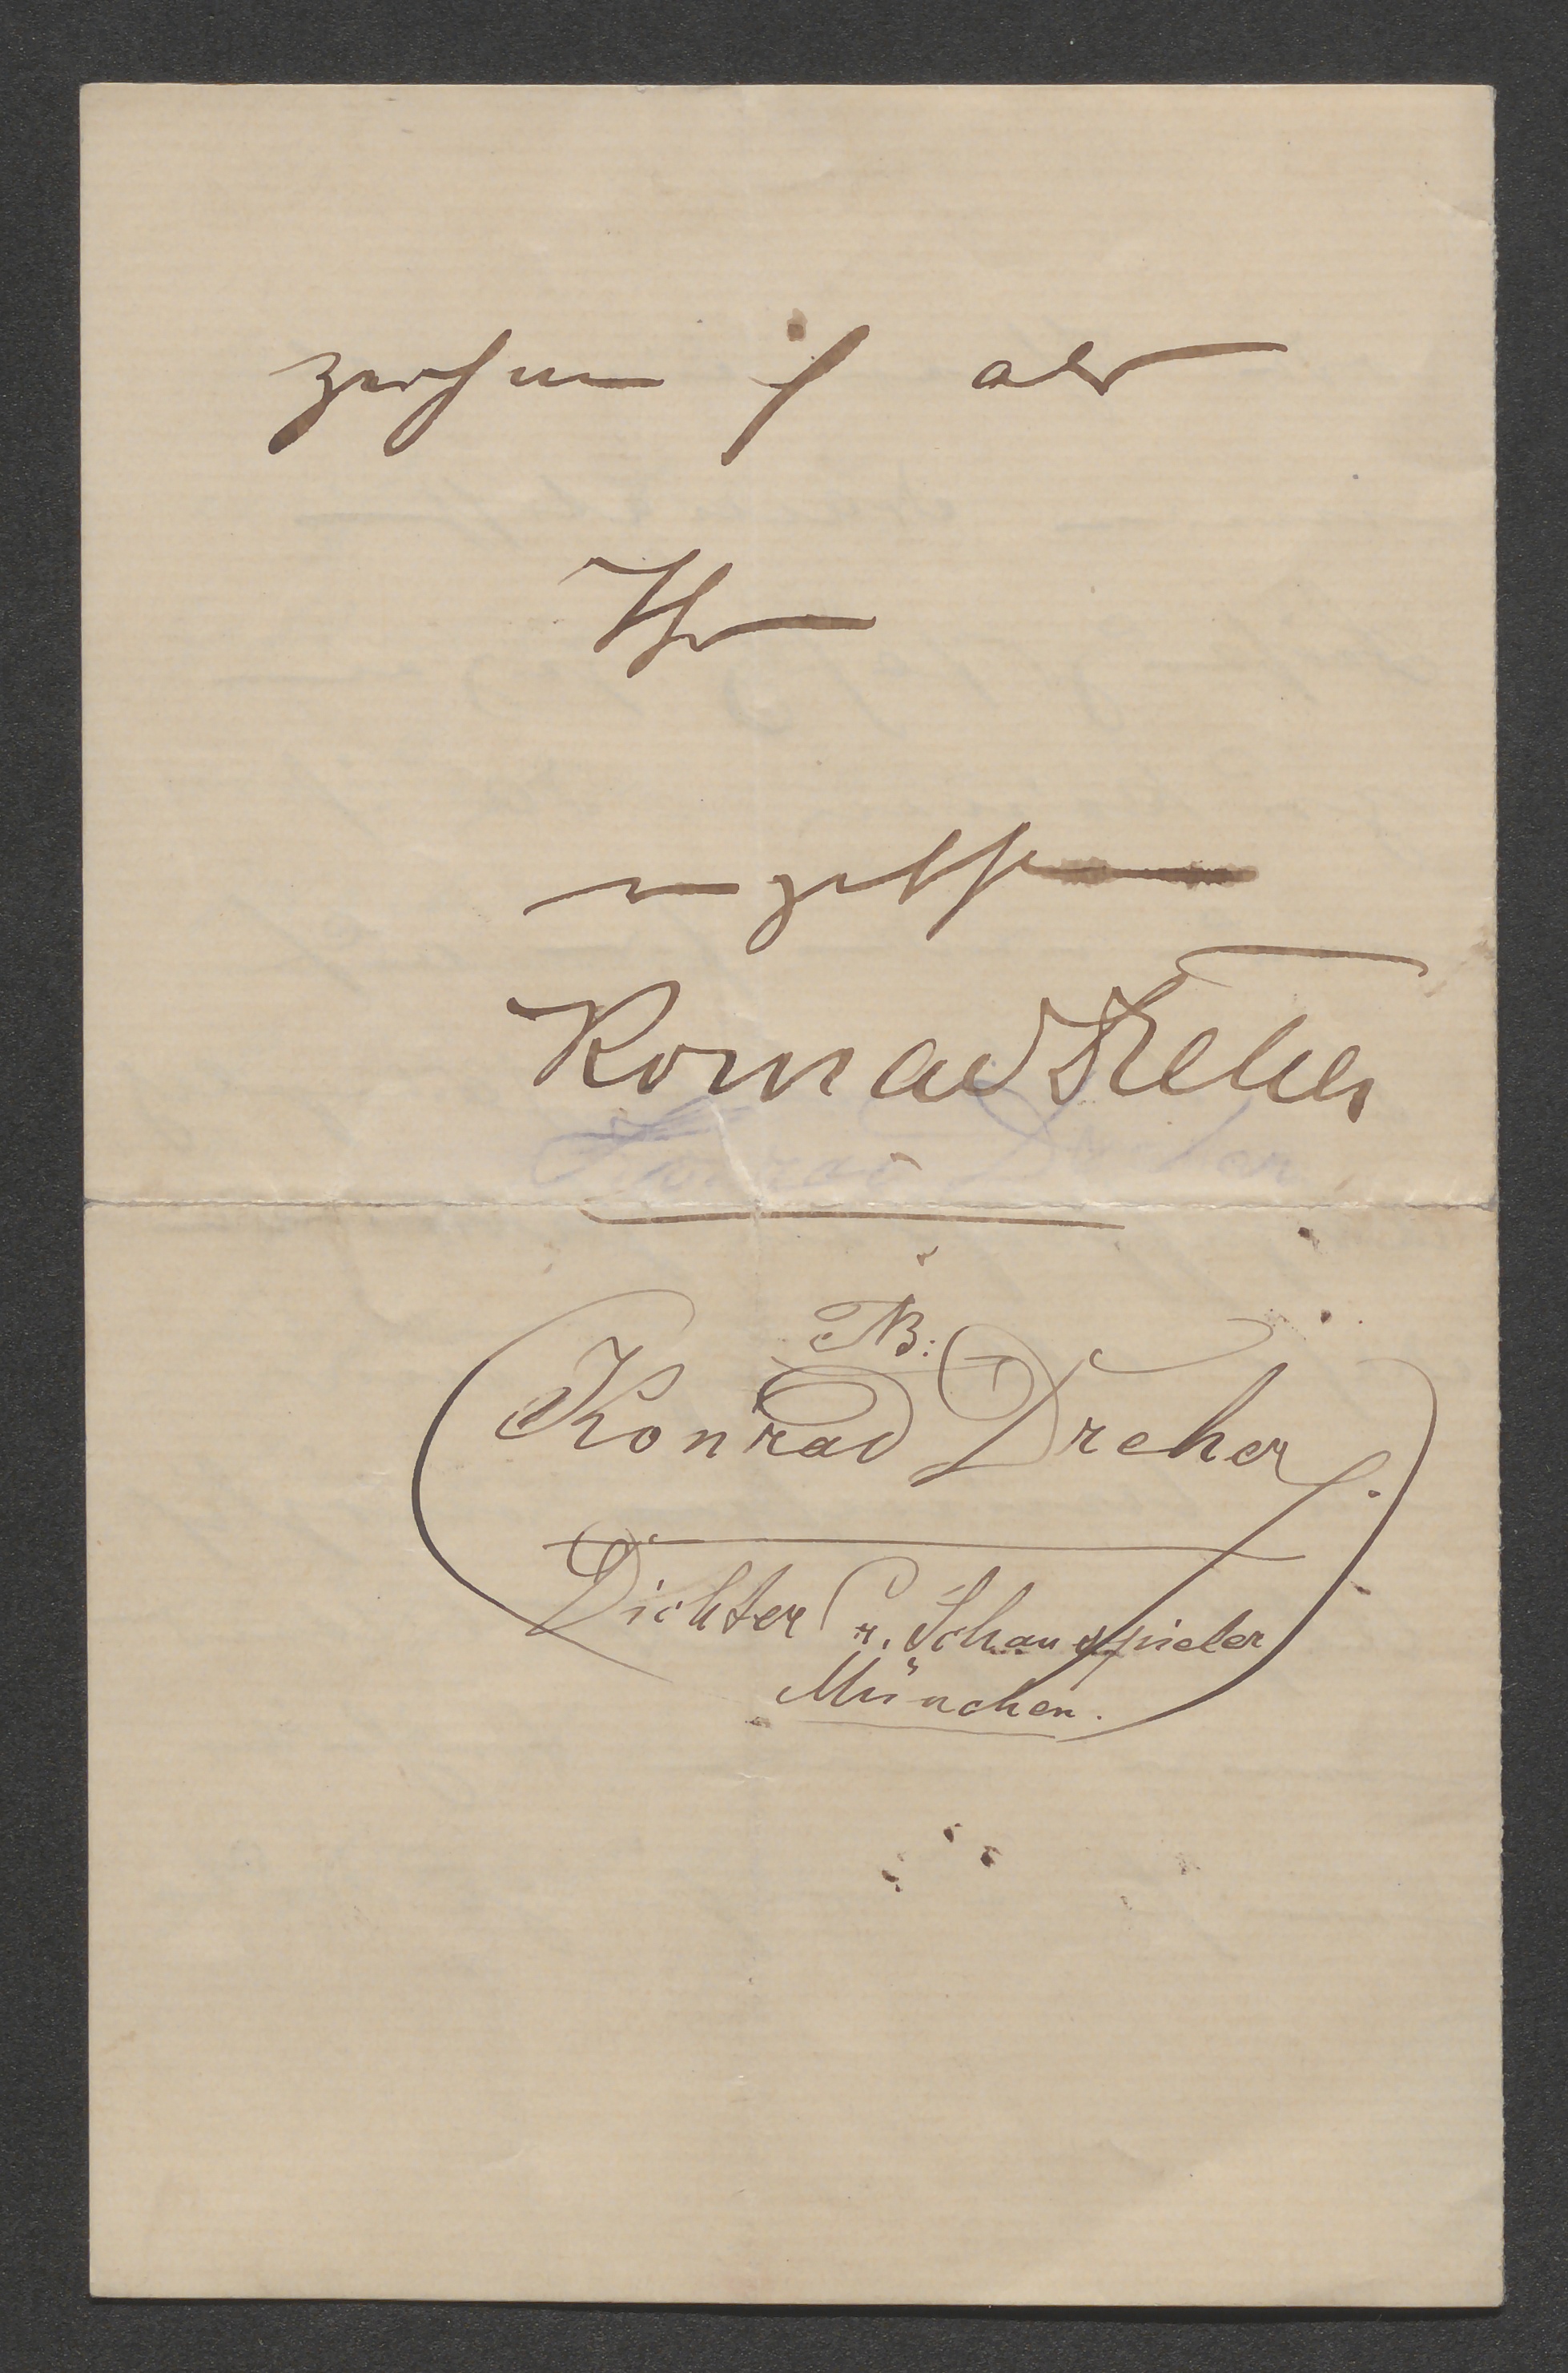 zeichne ich als
Ihr
ergebenster
Konrad Dreher
Konrad Dreher
NB:
Konrad Dreher.
Dichter u. Schauspieler
München.